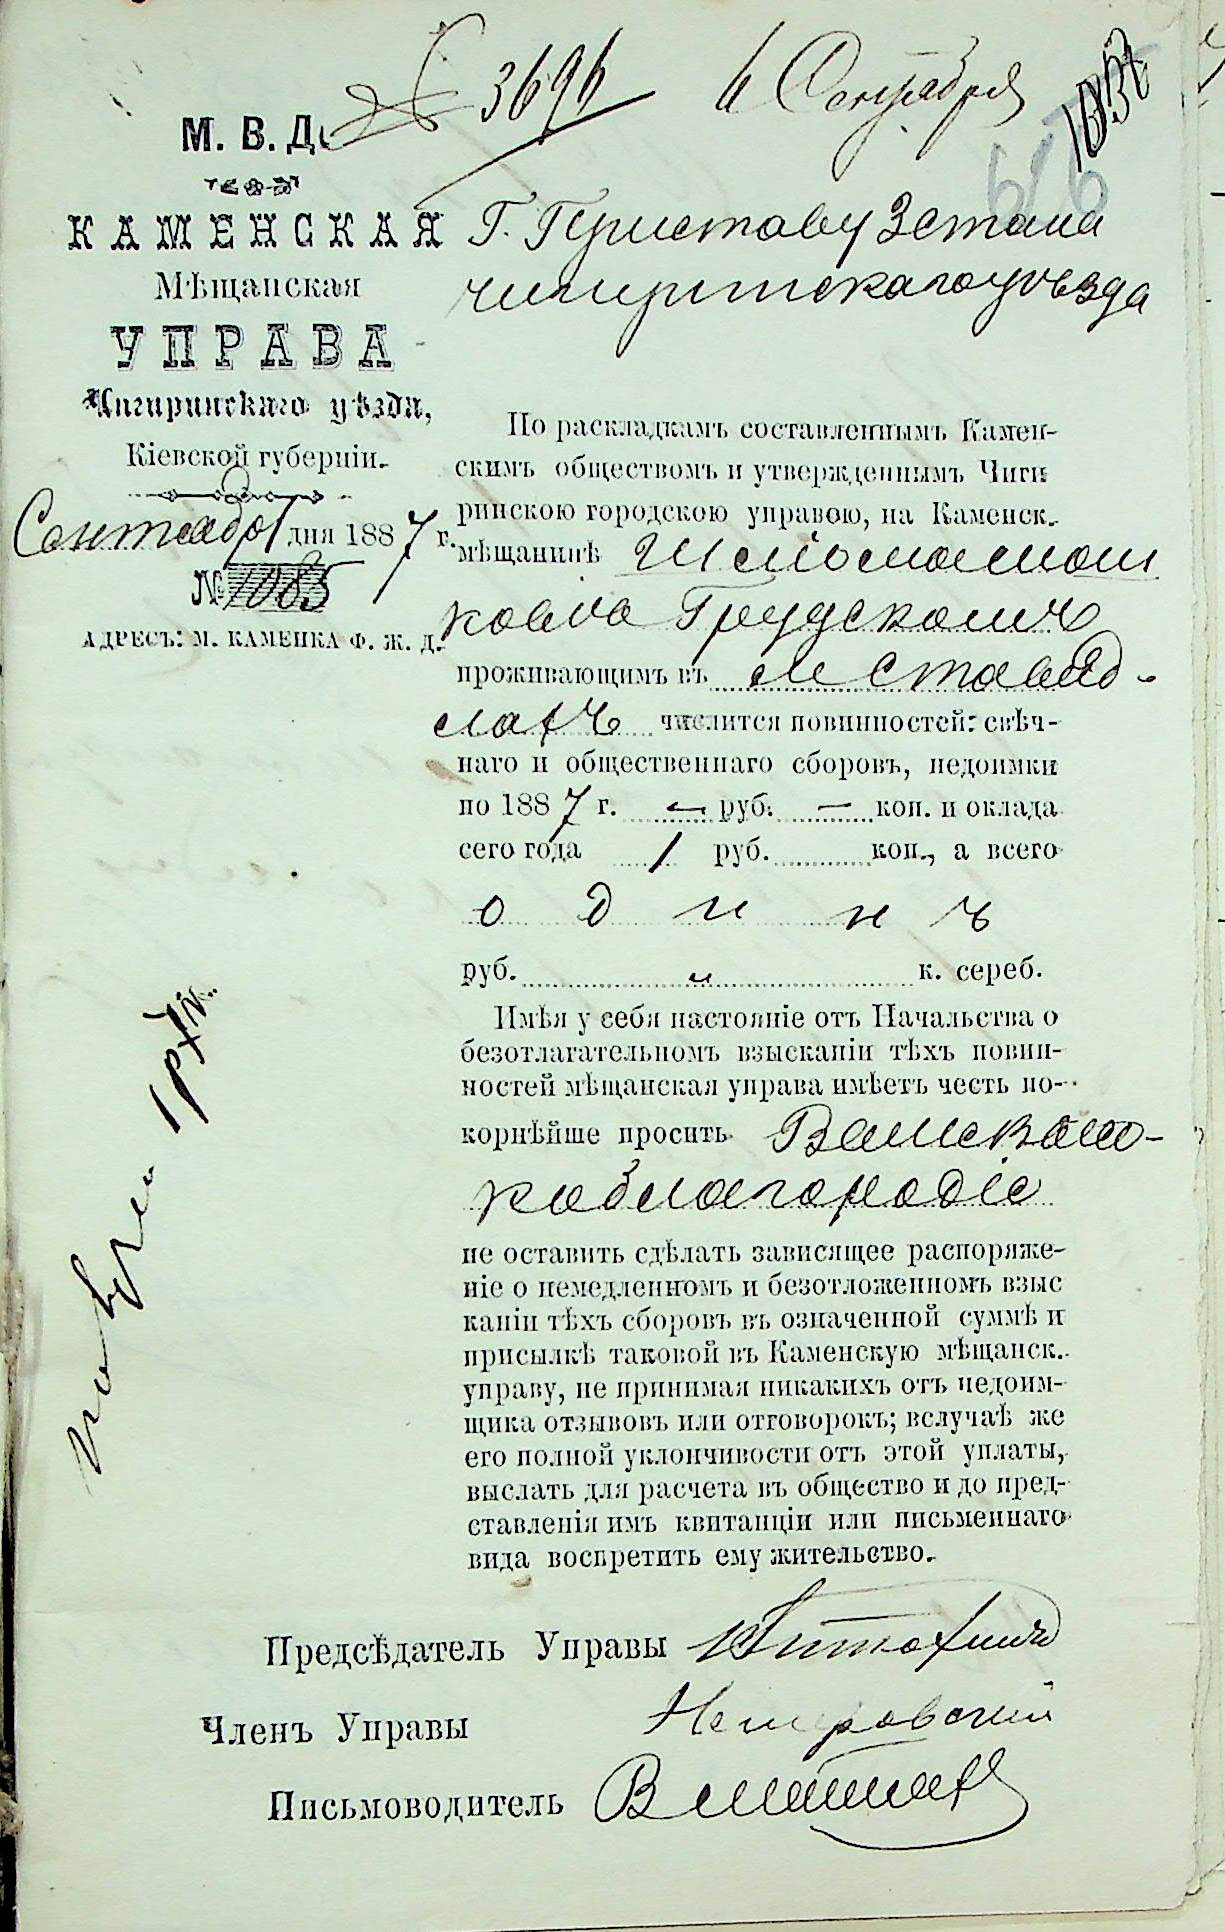 № 3696 6 Сентября
М. В. Д.
КАМЕНСКАЯ
Мѣщанская
УПРАВА
Чигиринскаго уѣзда,
Кіевской губерніи.
Сентября 1 дня 1887 г.
№ 1085
АДРЕСЪ: М. КАМЕНКА Ф. Ж. Д.
Г. Приставу 3 стана
чигиринскаго уѣзда
По раскладкамъ составленнымъ Камен-
скимъ обществомъ и утвержденнымъ Чиги
ринскою городскою управою, на Каменск.
мѣщанинѣ
Грудскомъ
проживающимъ въ м Ставид-
лахъ числится повинностей: свѣч-
наго и общественнаго сборовъ, недоимки
по 1887 г. — руб. — коп. и оклада
сего года 1 руб. коп., а всего
одинъ
руб. „ к. сереб.
Имѣя у себя настояніе отъ Начальства о
безотлагательномъ взысканіи тѣхъ повин-
ностей мѣщанская управа имѣетъ честь по-
корнѣйше просить Ваше Высо-
коблагородіе
не оставить сдѣлать зависящее распоряже-
ніе о немедленномъ и безотложенномъ взыс
каніи тѣхъ сборовъ въ означенной суммѣ и
присылкѣ таковой въ Каменскую мѣщанск.
управу, не принимая никакихъ отъ недоим-
щика отзывовъ или отговорокъ; вслучаѣ же
его полной уклончивости отъ этой уплаты,
выслать для расчета въ общество и до пред-
ставленія имъ квитанціи или письменнаго
вида воспретить ему жительство.
Предсѣдатель Управы
Членъ Управы
Письмоводитель